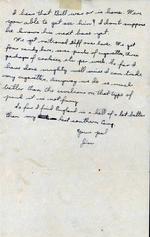 I hear that Bill was or is home. Were
you able to get see him? I don't suppose
he knows his next base yet.
We get rationed stuff over here. We get
four candy bars, seven packs of cigarettes, three
packages of cookies, etc per week. So far I
have done mighty well since I can trade
my cigarettes. Anyway we do a much
better than the civilians on that type of
goods is not funny.
So far I find England is a hell of a lot better
than my last southern Camp
Your pal
Jim